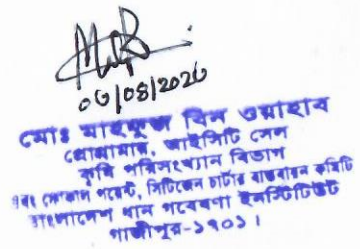 ০৬/০৪/২০২৬
মোঃ মাহফুজ বিন ওয়াহাব
প্রোগ্রামার, আইসিটি সেল
কৃষি পরিসংখ্যান বিভাগ
এবং ফোকাল পয়েন্ট, সিটিজেন চার্টার বাস্তবায়ন কমিটি
বাংলাদেশ ধান গবেষণা ইনস্টিটিউট
গাজীপুর-১৭০১।